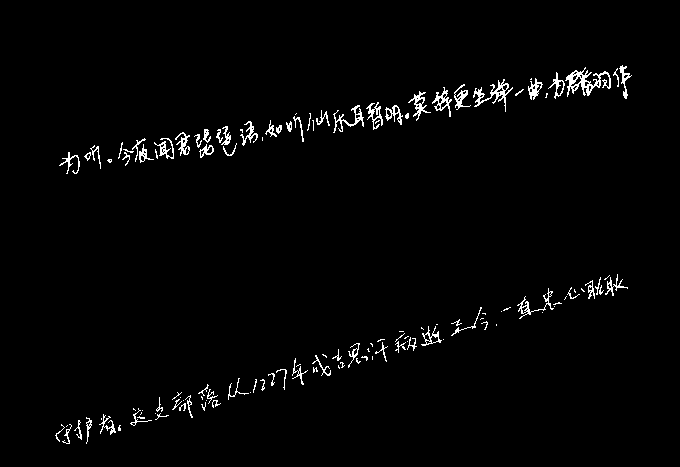 为听。今夜闻君琵琶语,如听仙乐耳暂明。莫辞更坐弹一曲,为君翻作
守护者。这支部落从1227年成吉思汗病逝至今,一直忠心耿耿